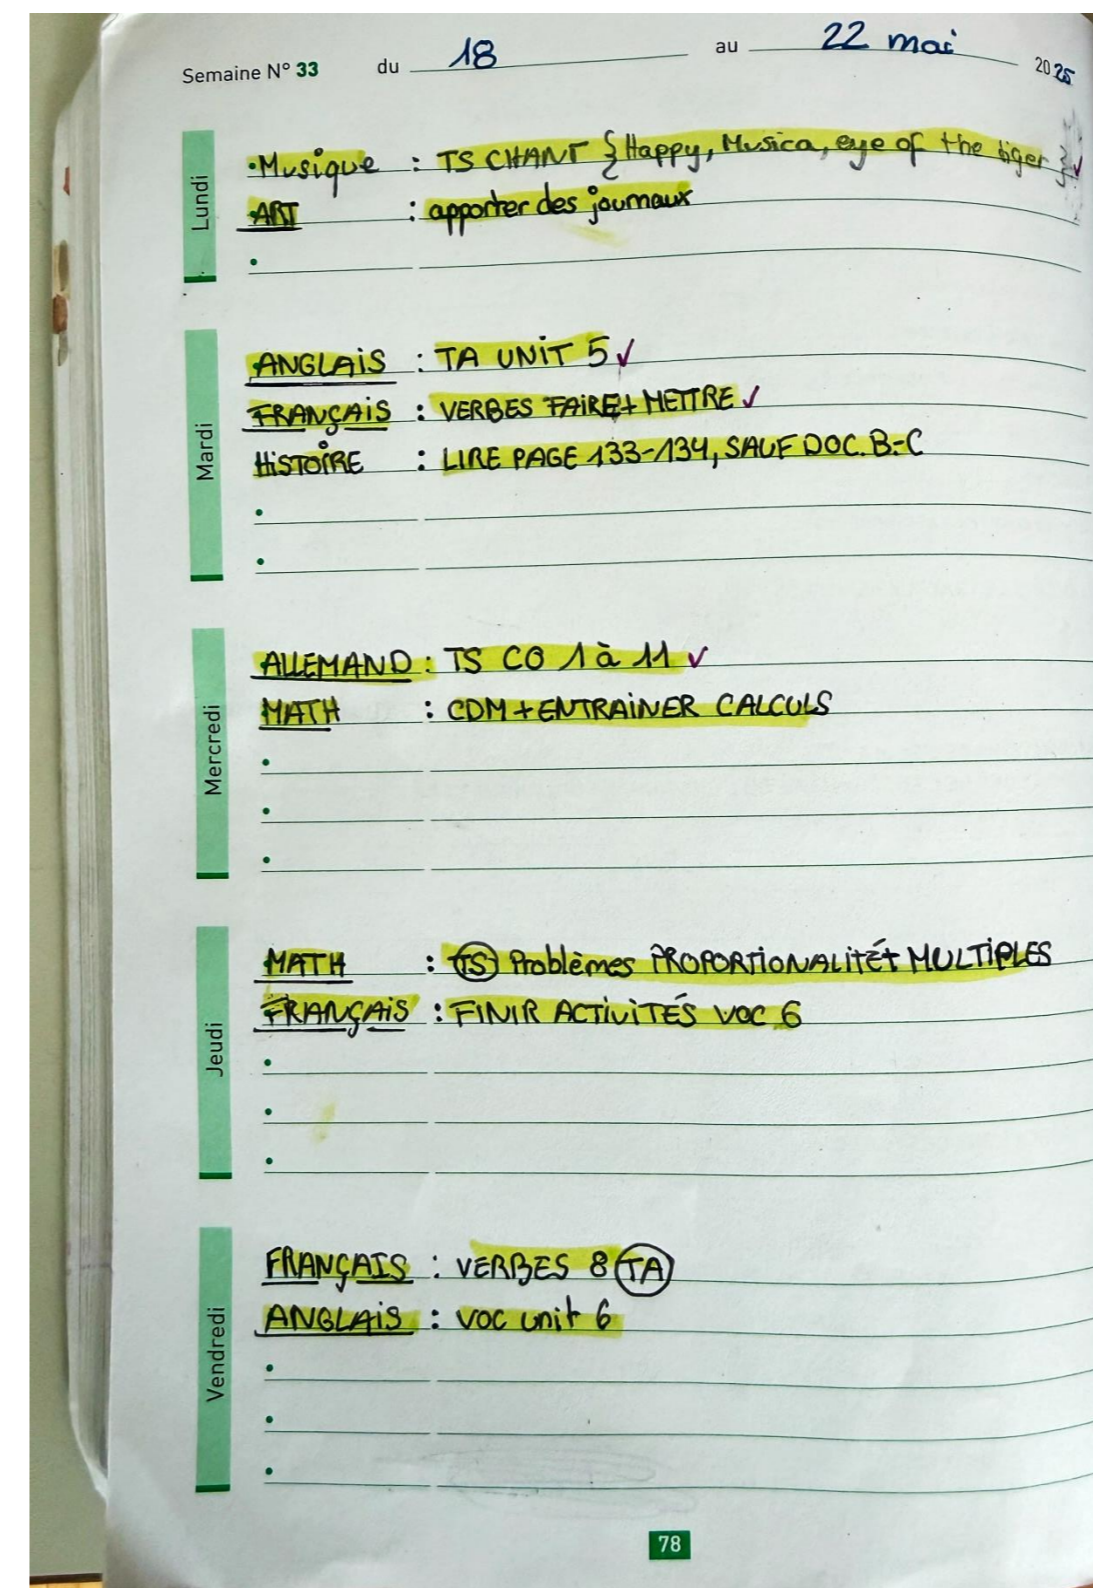 Semaine N° 33 du 18 au 22 mai 2025
Lundi
• Musique : TS CHANT { Happy, Musica, eye of the tiger } ✓
ART : apporter des journaux
•
Mardi
ANGLAIS : TA UNIT 5 ✓
FRANÇAIS : VERBES FAIRE + METTRE ✓
HISTOIRE : LIRE PAGE 133-134, SAUF DOC. B-C
•
•
Mercredi
ALLEMAND : TS CO 1 à 11 ✓
MATH : CDM + ENTRAINER CALCULS
•
•
•
Jeudi
MATH : TS Problèmes PROPORTIONALITÉ + MULTIPLES
FRANÇAIS : FINIR ACTIVITÉS VOC 6
•
•
•
Vendredi
FRANÇAIS : VERBES 8 TA
ANGLAIS : voc unit 6
•
•
•
78